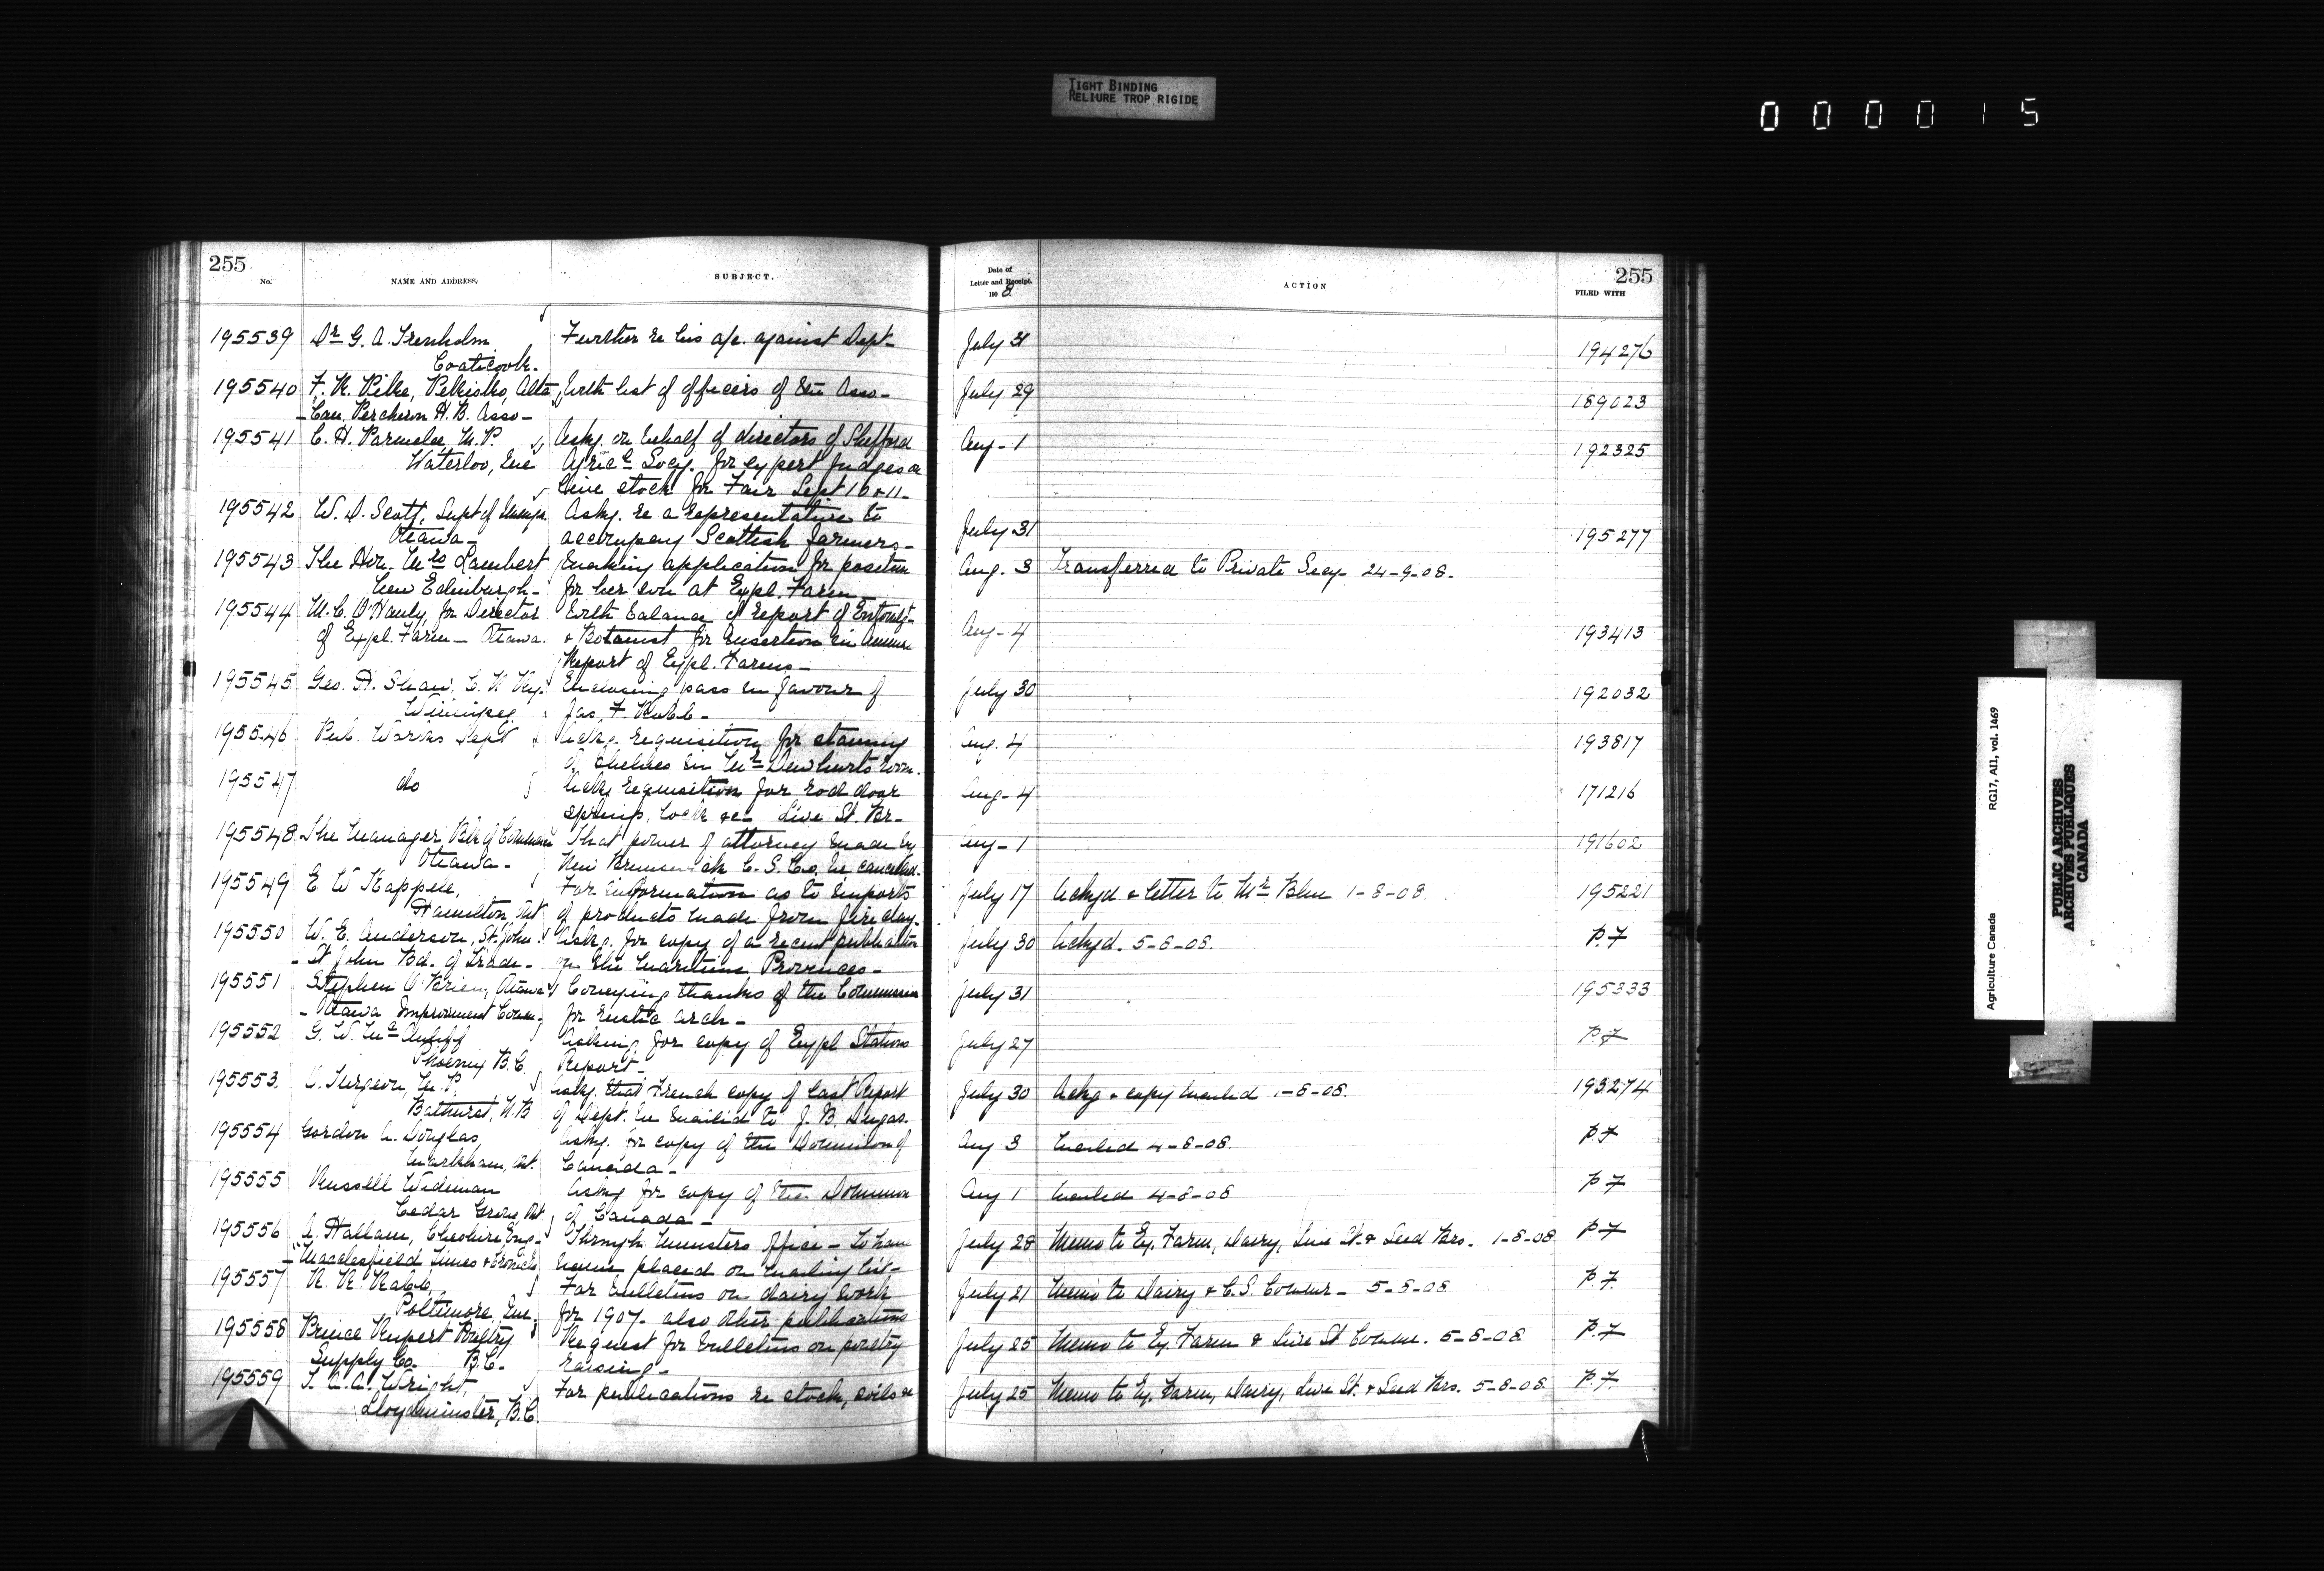 TIGHT BINDING
RELIURE TROP RIGIDE
0 0 0 0 1 5
255
No.
NAME AND ADDRESS.
SUBJECT.
Date of
Letter and Receipt.
190 8
ACTION
255
FILED WITH
195539 Dr G. A. Trenholm Further re his a/c. against Dept- July 31 194276
Coaticook-
195540 F. R. Pike, Pekisko, Alta With list of officers of the Asso- July 29 189023
- Can. Percheron H. B. Asso-
195541 C. H. Parmelee M.P. Askg. on behalf of directors of Shefford Aug- 1 192325
Waterloo, Que Agricl Socy. for expert judges on
live stock for Fair Sept 10 & 11-
195542 W. D. Scott, Supt of Immign. Askg. re a representative to July 31 195277
Ottawa- accompany Scottish farmers-
195543 The Hon. Mrs Lambert Making application for position Aug. 3 Transferred to Private Secy- 24-9-08.
New Edinburgh- for her son at Expl. Farm-
195544 W. C. O'Hanly, for Director With balance of report of Entomlgt- Aug- 4 193413
of Expl. Farm- Ottawa. & Botanist for insertion in Annual
Report of Expl. Farms-
195545 Geo. H. Shaw, C. N. Ry. Enclosing pass in favour of July 30 192032
Winnipeg Jas. F. Robb-
195546 Pub. Works Dept Ackg. requisition for staining Aug. 4 193817
of shelves in Mr Dewhurts room.
195547 do Ackg requisition for rod door Aug- 4 171216
springs, lock &c- Live St. Br-
195548 The Manager, Bk of Commerce That power of attorney made by Aug- 1 191602
Ottawa- New Brunswick C. S. Co. be cancelled.
195549 E. W. Kappele, For information as to imports July 17 Ackgd. & letter to Mr Blue 1-8-08. 195221
Hamilton, Ont of products made from fire clay.
195550 W. E. Anderson, St. John. Askg. for copy of a recent publication July 30 Ackgd. 5-8-08. P. 7
- St John Bd. of Trade- on the Maritime Provinces-
195551 Stephen O'Brien, Ottawa Conveying thanks of the Commission July 31 195333
- Ottawa Improvement Comn- for rustic arch-
195552 G. W. McAuliff Asking for copy of Expl Stations July 27 P. 7
Phoenix B.C. Report-
195553 O. Turgeon, M.P. Askg. that French copy of last Report July 30 Ackg & copy mailed 1-8-08. 193274
Bathurst, N.B of Dept. be mailed to J. B. Dugas.
195554 Gordon A. Douglas, Askg. for copy of the Dominion of Aug 3 Mailed 4-8-08. P. 7
Markham, Ont. Canada-
195555 Russell Wideman Askg for copy of the Dominion Aug 1 Mailed 4-8-08 P 7
Cedar Grove, Ont of Canada-
195556 A. Hallam, Cheshire Eng- Through Ministers Office- To have July 28 Memo to Ex. Farm, Dairy, Live St. & Seed Brs. 1-8-08 P 7
- "Macclesfield Times & Chronicle name placed on mailing list-
195557 R. R. Rabb, For bulletins on dairy work July 21 Memo to Dairy & C. S. Commr- 5-8-08 P. 7.
Poltimore, Que. for 1907- also other publications
195558 Prince Rupert Poultry Request for bulletins on poultry July 25 Memo to Ex. Farm & Live St Commr. 5-8-08 P. 7
Supply Co. B.C- raising-
195559 T. A. A. Wright, For publications re stock, soils &c July 25 Memo to Ex. Farm, Dairy, Live St. & Seed Brs. 5-8-08. P. 7.
Lloydminster, B.C.
Agriculture Canada RG17, AII, vol. 1469
PUBLIC ARCHIVES
ARCHIVES PUBLIQUES
CANADA